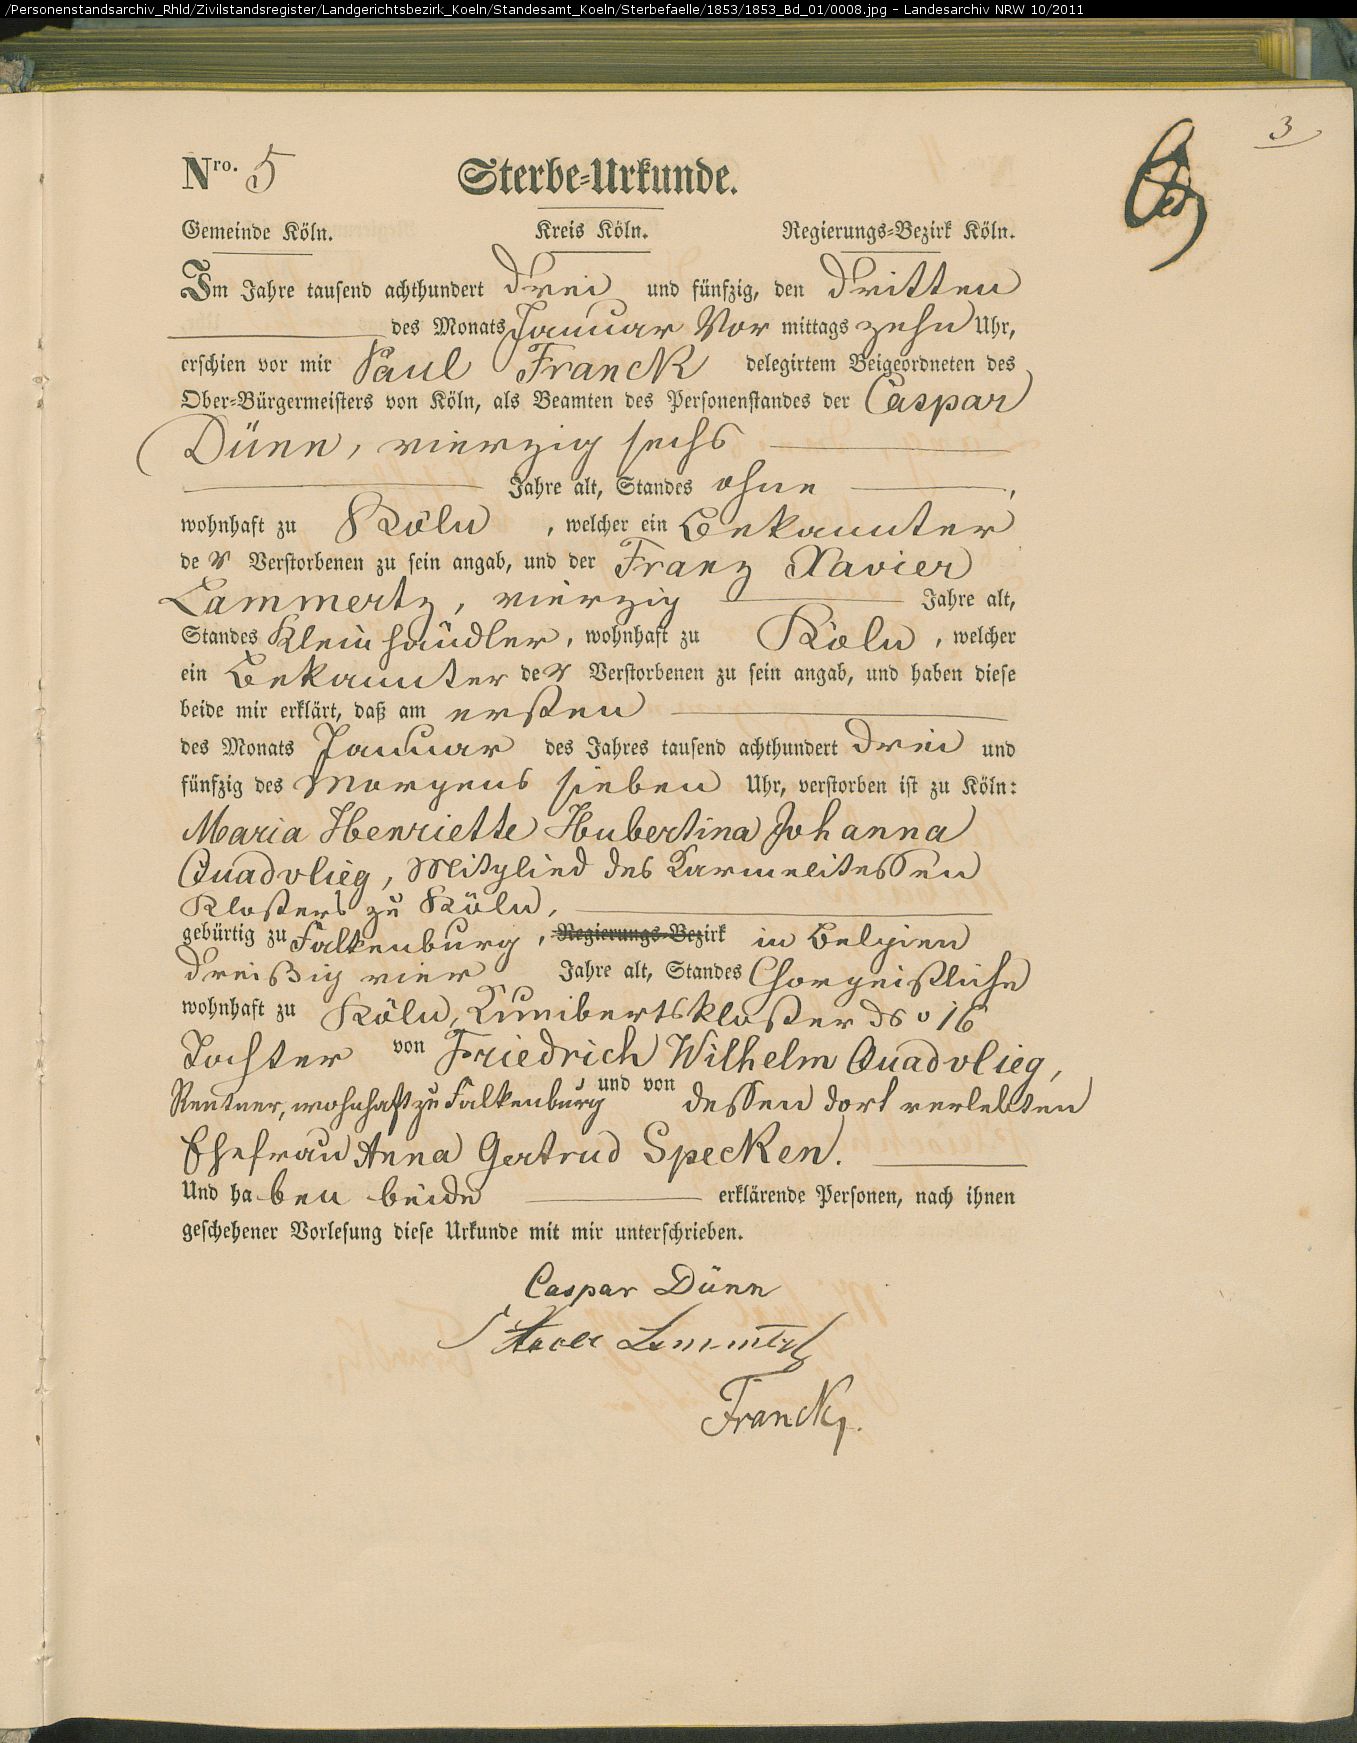 /Personenstandsarchiv_Rhld/Zivilstandsregister/Landgerichtsbezirk_Koeln/Standesamt_Koeln/Sterbefaelle/1853/1853_Bd_01/0008.jpg - Landesarchiv NRW 10/2011
3
Nro. 5 Sterbe-Urkunde.
Gemeinde Köln. Kreis Köln. Regierungs-Bezirk Köln.
Im Jahre tausend achthundert drei und fünfzig, den dritten
des Monats Januar Vor mittags zehn Uhr,
erschien vor mir Paul Franck delegirtem Beigeordneten des
Ober-Bürgermeisters von Köln, als Beamten des Personenstandes der Caspar
Dünn, vierzig sechs
Jahre alt, Standes ohne,
wohnhaft zu Köln, welcher ein Bekannter
de r Verstorbenen zu sein angab, und der Franz Xavier
Lammertz, vierzig Jahre alt,
Standes Kleinhändler, wohnhaft zu Köln, welcher
ein Bekannter de r Verstorbenen zu sein angab, und haben diese
beide mir erklärt, daß am ersten
des Monats Januar des Jahres tausend achthundert drei und
fünfzig des Morgens sieben Uhr, verstorben ist zu Köln:
Maria Henriette Hubertina Johanna
Quadvlieg, Mitglied des Karmelitessen
Klosters zu Köln,
gebürtig zu Falkenburg, Regierungs-Bezirk in Belgien
dreißig vier Jahre alt, Standes Chorgeistliche
wohnhaft zu Köln, Kunibertskloster No 16
Tochter von Friedrich Wilhelm Quadvlieg,
Rentner, wohnhaft zu Falkenburg und von dessen dort verlebten
Ehefrau Anna Gertrud Specken.
Und haben beide erklärende Personen, nach ihnen
geschehener Vorlesung diese Urkunde mit mir unterschrieben.
Caspar Dünn
Xavier Lammertz
Franck